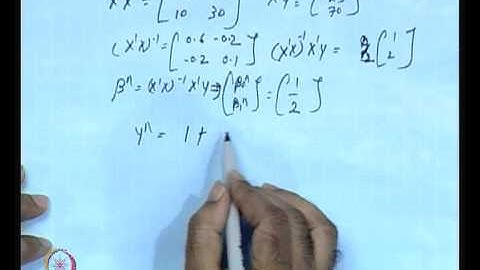 X'X = [ ; 10 30 ] X'Y = ( ; 70 )
(X'X)⁻¹ = [ 0.6 -0.2 ; -0.2 0.1 ] (X'X)⁻¹X'Y = [ 1 ; 2 ]
β^ = (X'X)⁻¹ X'Y ⇒ [ β₀^ ; β₁^ ] = ( 1 ; 2 )
Y^ = 1 +